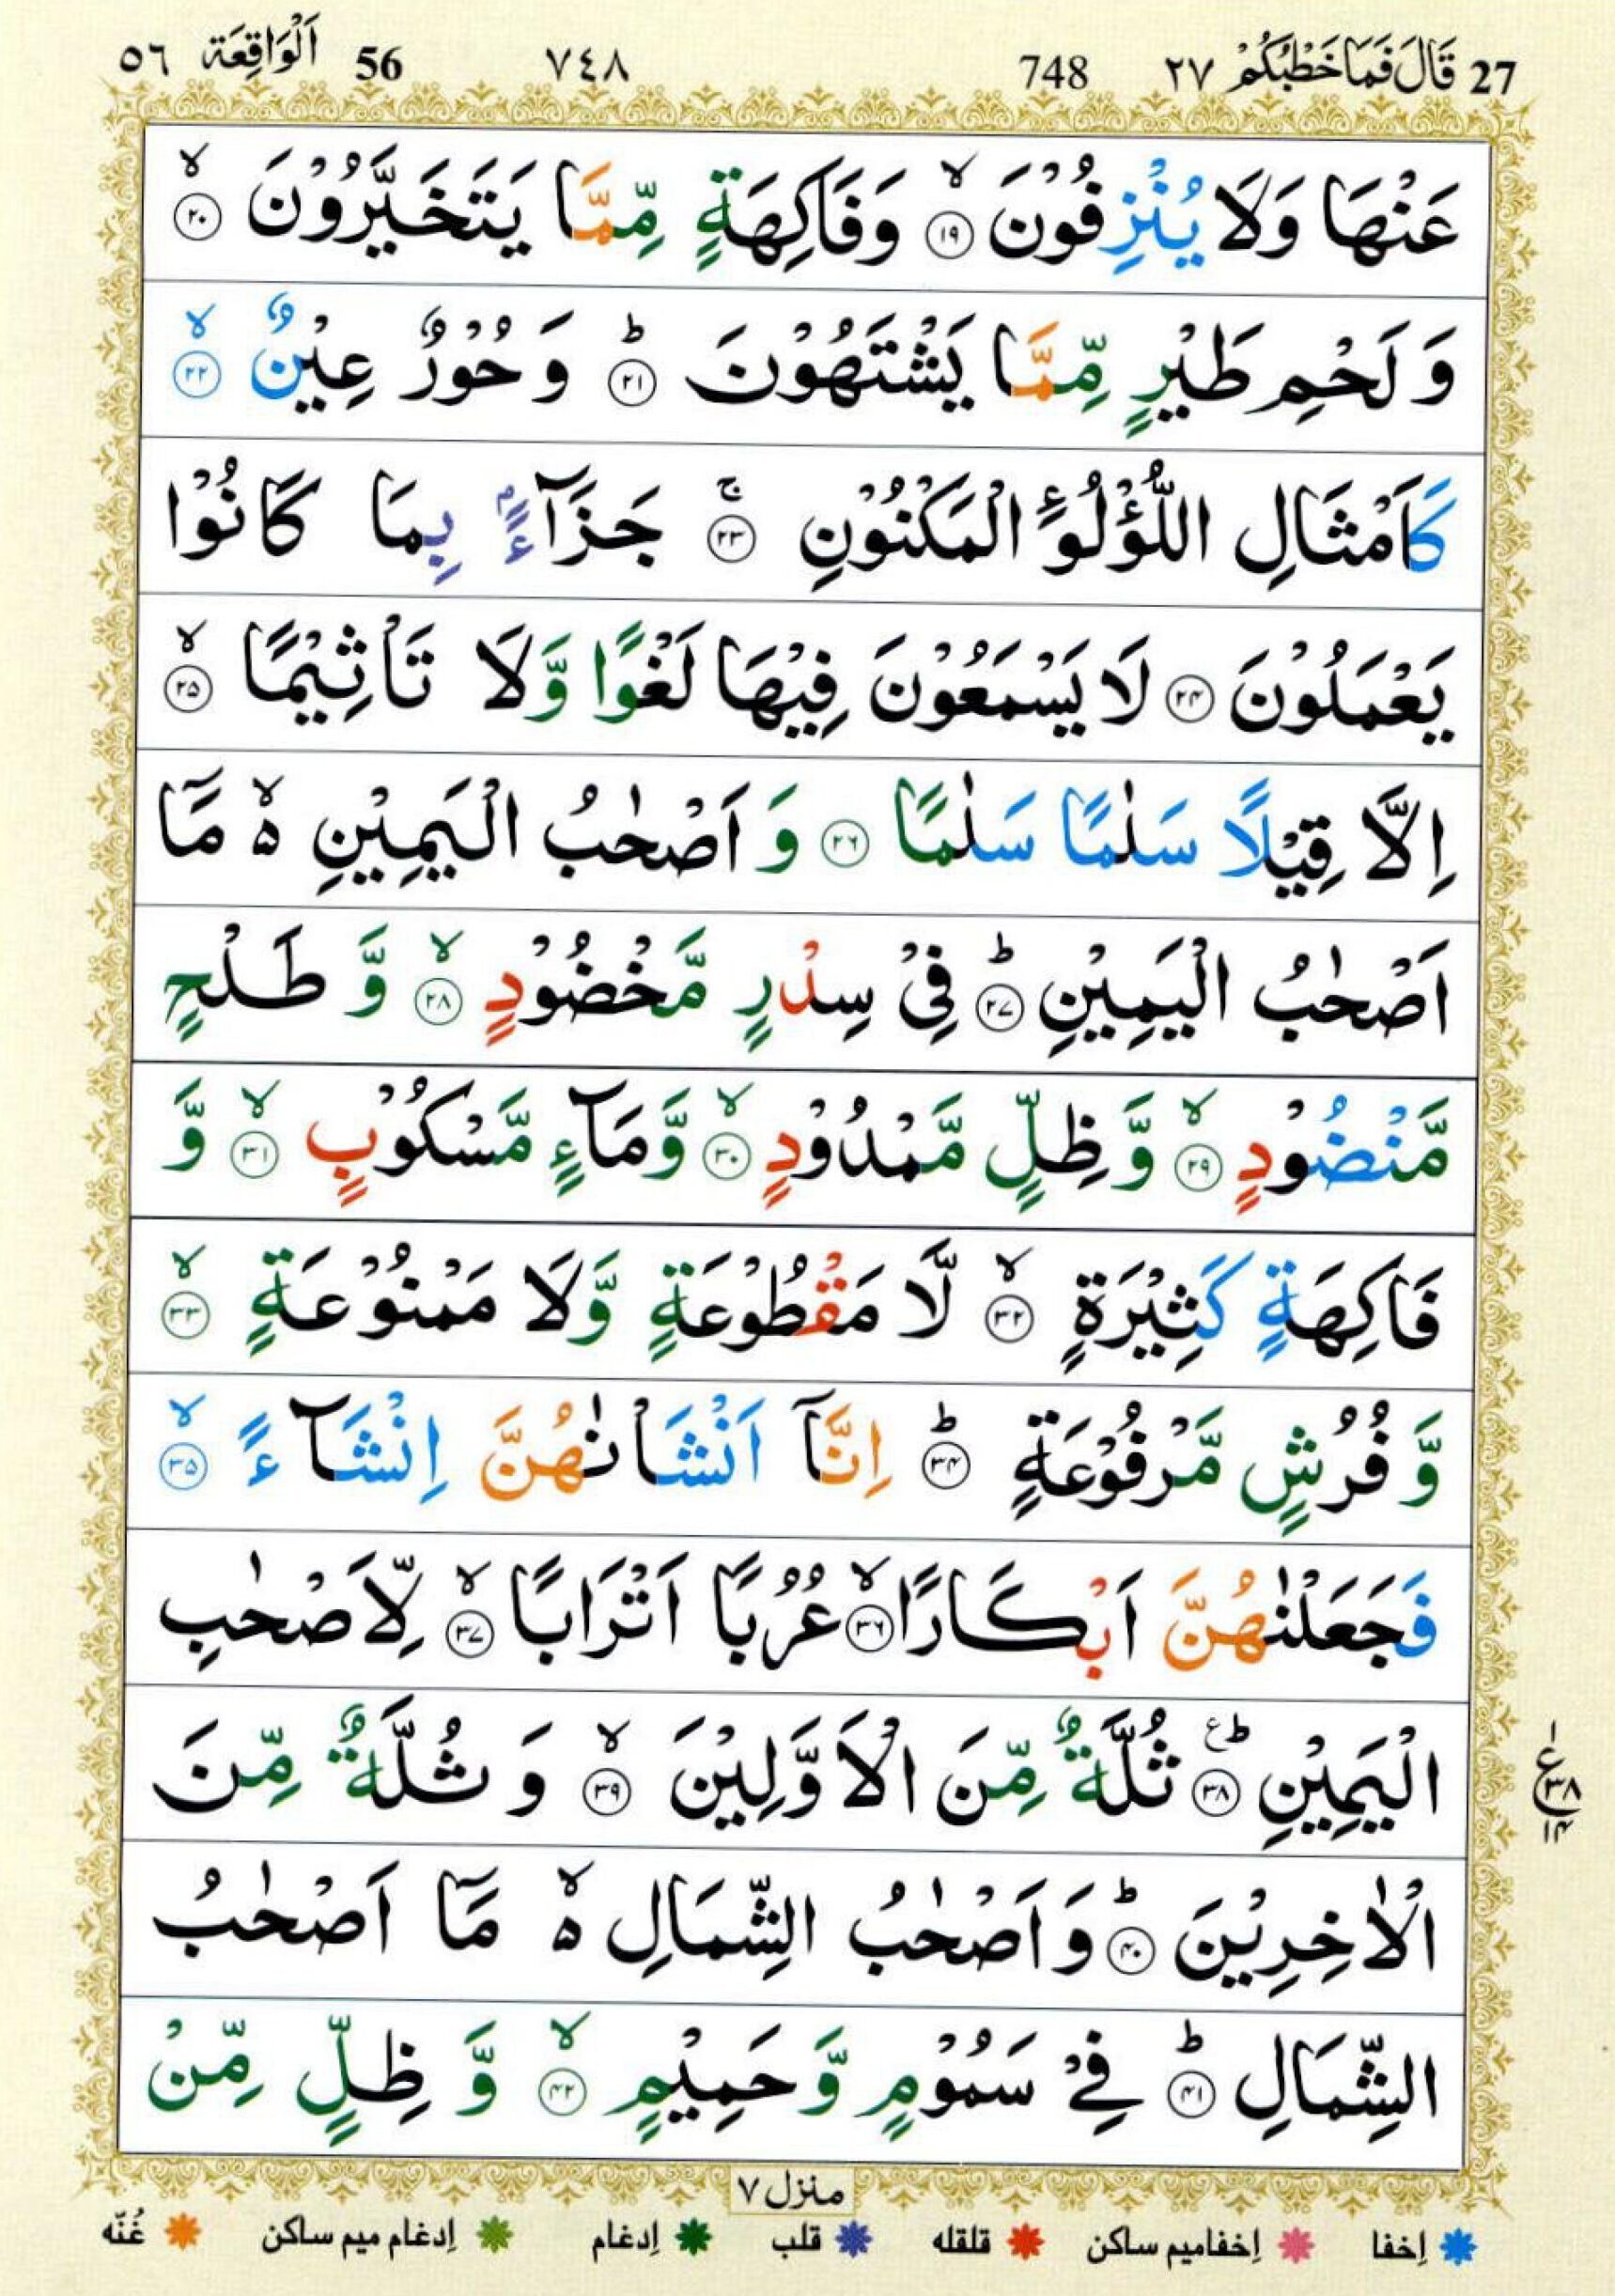 27 قَالَ فَمَا خَطْبُكُمْ ٢٧ 748 ٧٤٨ 56 اَلْوَاقِعَة ٥٦
عَنْهَا وَلَا يُنْزِفُوْنَ ۙ﴿۱۹﴾ وَفَاكِهَةٍ مِّمَّا يَتَخَيَّرُوْنَ ۙ﴿۲۰﴾
وَ لَحْمِ طَيْرٍ مِّمَّا يَشْتَهُوْنَ ؕ﴿۲۱﴾ وَ حُوْرٌ عِيْنٌ ۙ﴿۲۲﴾
كَاَمْثَالِ اللُّؤْلُوَٴ الْمَكْنُوْنِ ۚ﴿۲۳﴾ جَزَآءًۢ بِمَا كَانُوْا
يَعْمَلُوْنَ ﴿۲۴﴾ لَا يَسْمَعُوْنَ فِيْهَا لَغْوًا وَّلَا تَاْثِيْمًا ۙ﴿۲۵﴾
اِلَّا قِيْلًا سَلٰمًا سَلٰمًا ﴿۲۶﴾ وَ اَصْحٰبُ الْيَمِيْنِ ۙ۬ مَاۤ
اَصْحٰبُ الْيَمِيْنِ ؕ﴿۲۷﴾ فِىْ سِدْرٍ مَّخْضُوْدٍ ۙ﴿۲۸﴾ وَّ طَلْحٍ
مَّنْضُوْدٍ ۙ﴿۲۹﴾ وَّ ظِلٍّ مَّمْدُوْدٍ ۙ﴿۳۰﴾ وَّمَآءٍ مَّسْكُوْبٍ ۙ﴿۳۱﴾ وَّ
فَاكِهَةٍ كَثِيْرَةٍ ۙ﴿۳۲﴾ لَّا مَقْطُوْعَةٍ وَّلَا مَمْنُوْعَةٍ ۙ﴿۳۳﴾
وَّ فُرُشٍ مَّرْفُوْعَةٍ ؕ﴿۳۴﴾ اِنَّاۤ اَنْشَاْنٰهُنَّ اِنْشَآءً ۙ﴿۳۵﴾
فَجَعَلْنٰهُنَّ اَبْكَارًا ۙ﴿۳۶﴾ عُرُبًا اَتْرَابًا ۙ﴿۳۷﴾ لِّاَصْحٰبِ
الْيَمِيْنِ ؕ﴿۳۸﴾ ع ثُلَّةٌ مِّنَ الْاَوَّلِيْنَ ۙ﴿۳۹﴾ وَ ثُلَّةٌ مِّنَ
١ ع ٣٨ ١٤
الْاٰخِرِيْنَ ؕ﴿۴۰﴾ وَ اَصْحٰبُ الشِّمَالِ ۙ۬ مَاۤ اَصْحٰبُ
الشِّمَالِ ؕ﴿۴۱﴾ فِىْ سَمُوْمٍ وَّ حَمِيْمٍ ۙ﴿۴۲﴾ وَّ ظِلٍّ مِّنْ
منزل ٧
إخفا إخفاميم ساكن قلقله قلب إدغام إدغام ميم ساكن غُنّه